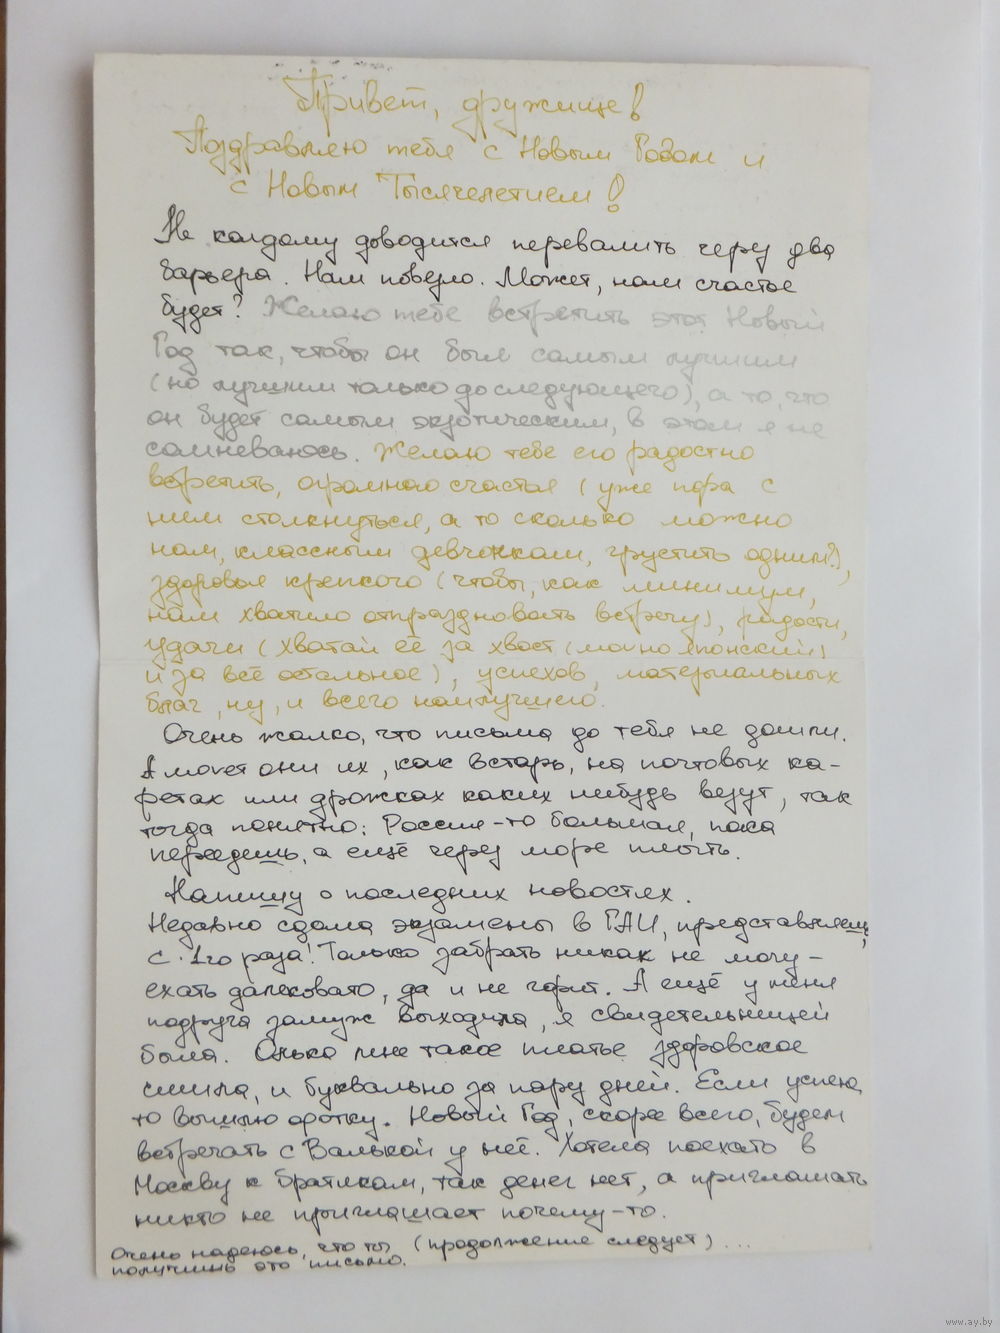 Привет, дружище!
Поздравляю тебя с Новым Годом и
с Новым Тысячелетием!
Не каждому доводится перевалить через два
барьера. Нам повезло. Может, нам счастье
будет? Желаю тебе встретить этот Новый
Год так, чтобы он был самым лучшим
(но лучшим только до следующего), а то, что
он будет самым экзотическим, в этом я не
сомневаюсь. Желаю тебе его радостно
встретить, огромного счастья (уже пора с
ним столкнуться, а то сколько можно
нам, классным девчонкам, грустить одним?),
здоровья крепкого (чтобы, как минимум,
нам хватило отпраздновать встречу), радости,
удачи (хватай её за хвост (можно японский)
и за всё остальное), успехов, материальных
благ, ну, и всего наилучшего.
Очень жалко, что письма до тебя не дошли.
А может они их, как встарь, на почтовых ка-
ретах или дрожках каких нибудь везут, так
тогда понятно: Россия-то большая, пока
переедешь, а ещё через море плыть.
Напишу о последних новостях.
Недавно сдала экзамены в ГАИ, представляешь,
с 1го раза! Только забрать никак не могу –
ехать далековато, да и не горит. А ещё у меня
подруга замуж выходила, я свидетельницей
была. Олько мне такое платье здоровское
сшила, и буквально за пару дней. Если успею,
то вышлю фотку. Новый Год, скорее всего, будем
встречать с Валькой у неё. Хотела поехать в
Москву к братикам, так денег нет, а приглашать
никто не приглашает почему-то.
Очень надеюсь, что ты (продолжение следует)...
получишь это письмо.
www.ay.by